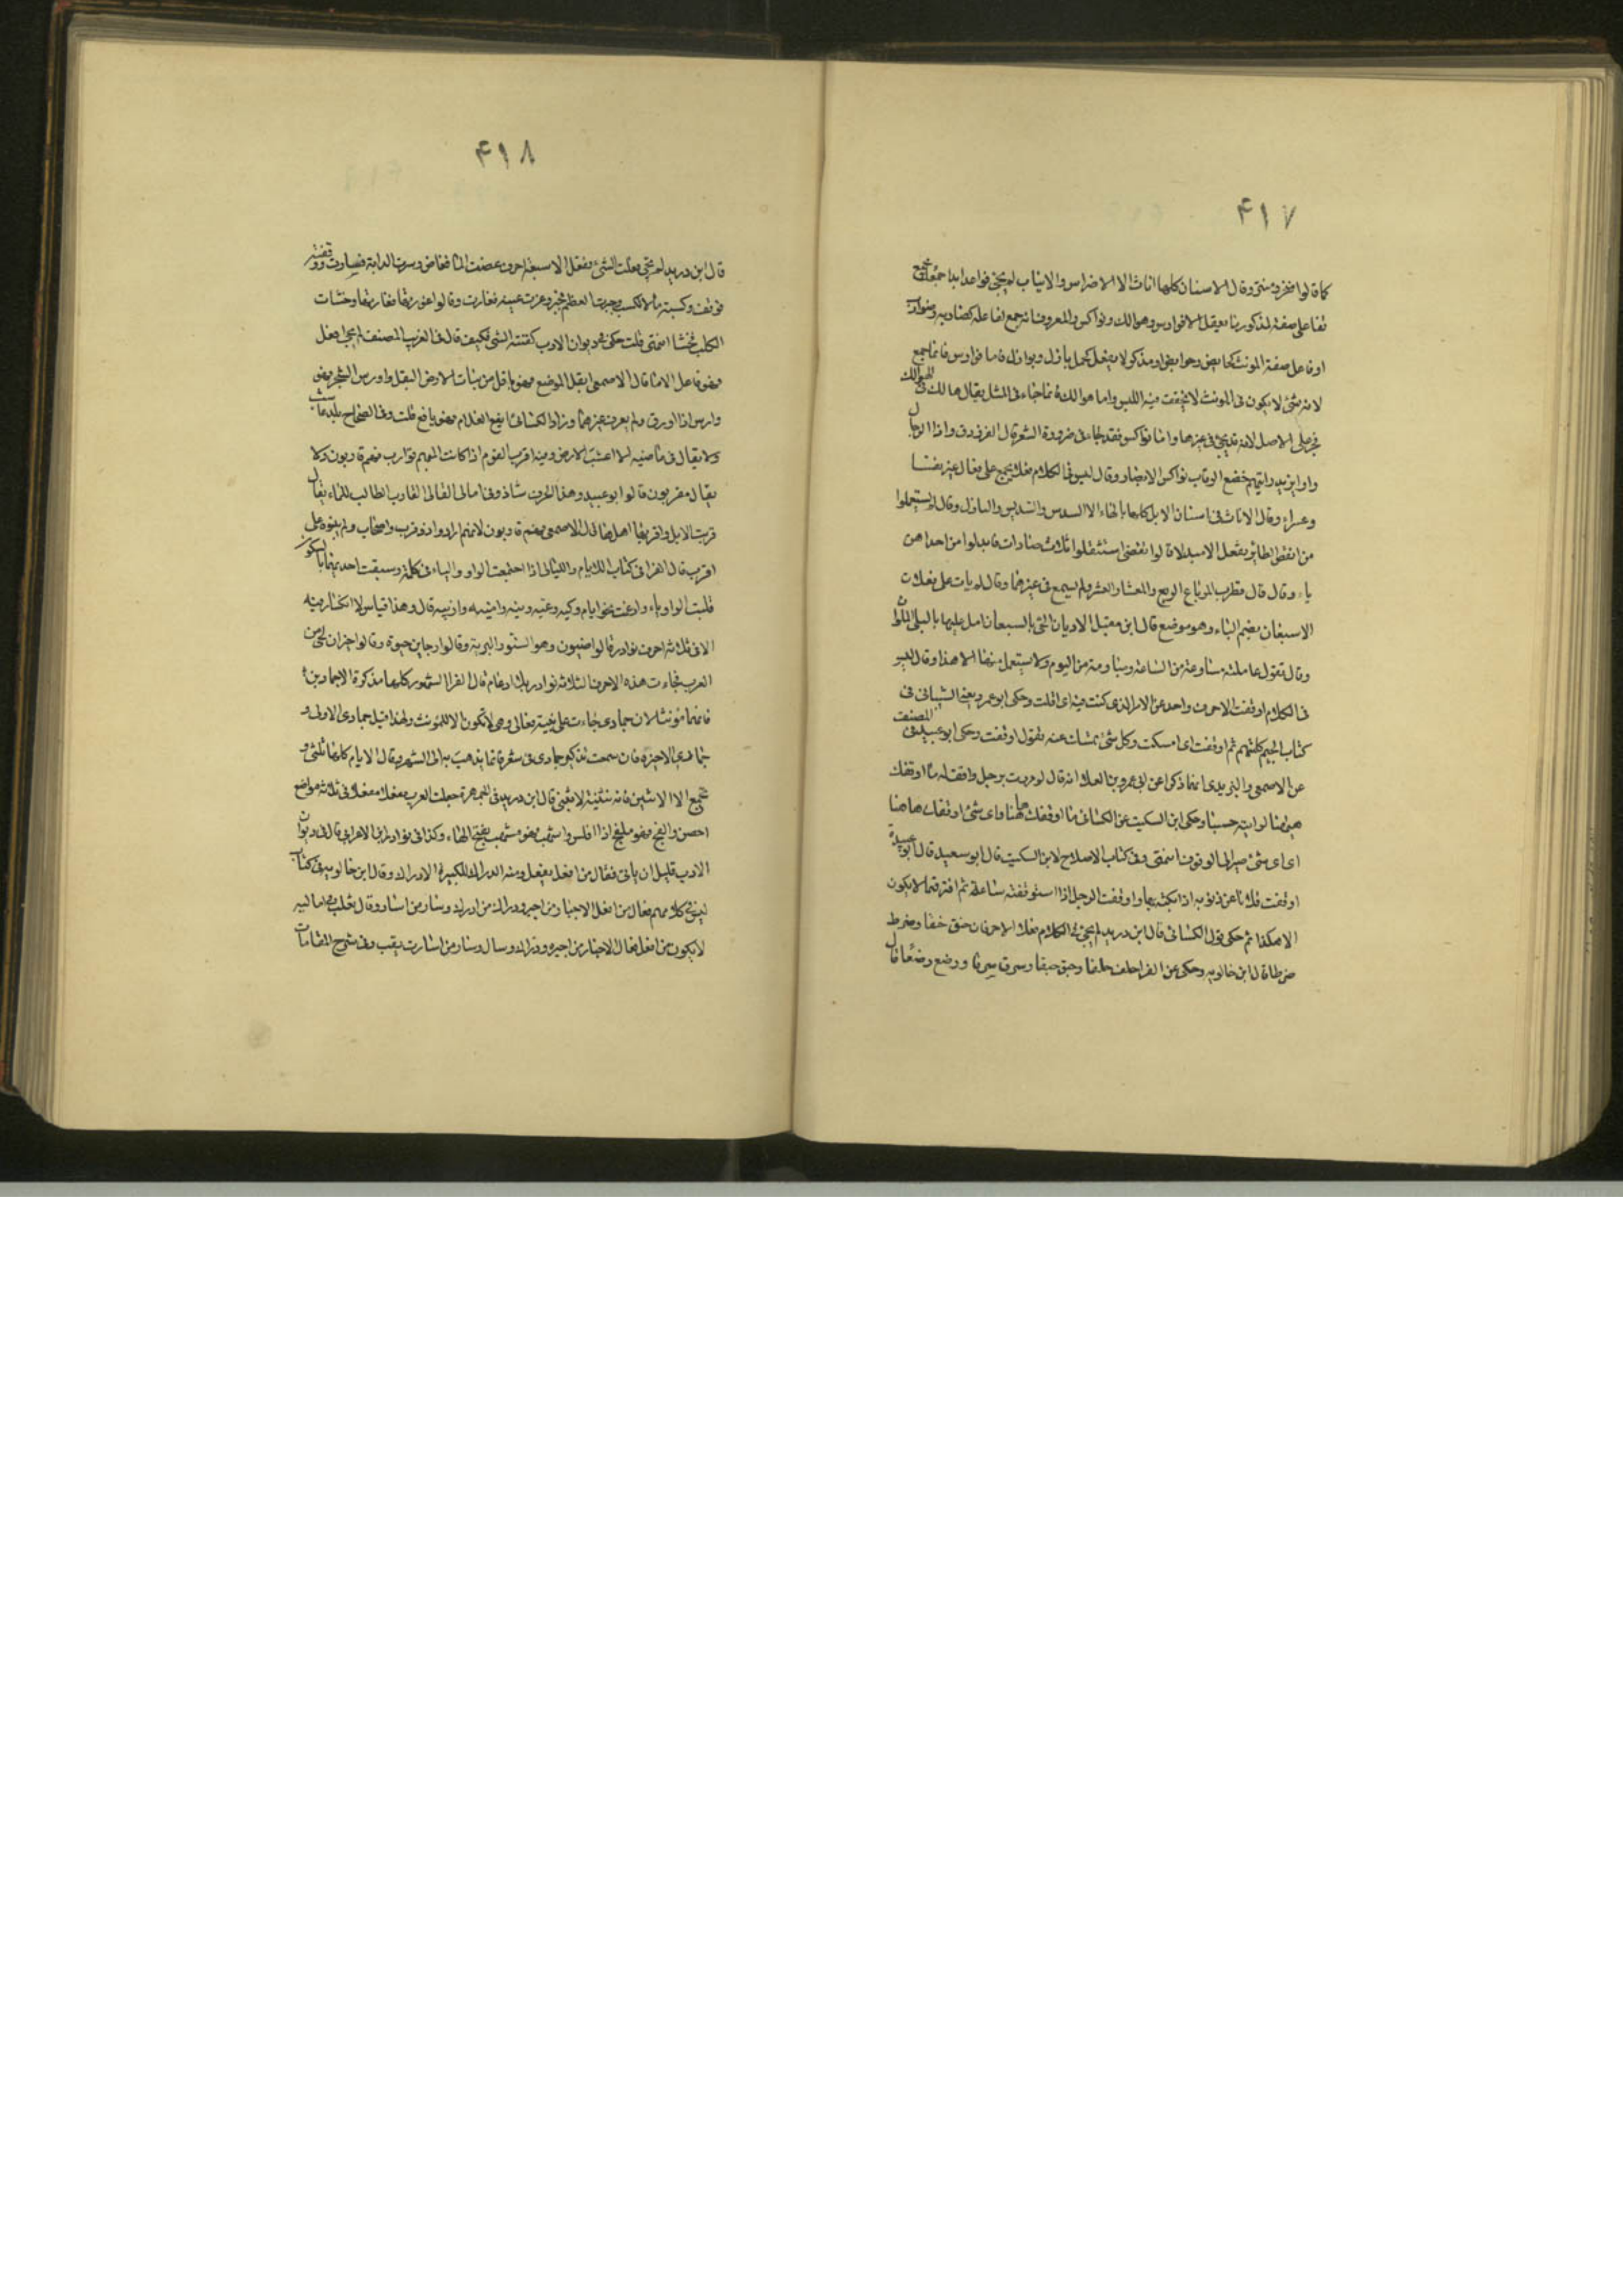 ۴۱۷
كما قالوا منخر ومنتن وقال الاسنان كلها اناث الا الاضراس والانياب لم يجئ فواعد ابدا جمعا
لفاعل صفة لمذكر ممن يعقل الا فوارس وهوالك ونواكس والمعروف انه جمع لفاعلة كضاربة وضوارب
او فاعل صفة المونث كحايض وحوايض او مذكر لا يعقل كجمل بازل وبوازل فاما فوارس فانما جمع
لانه شئ لا يكون فى المونث لا يخفت فيه اللبس واما هوالك فانما جاء فى المثل يقال هالك فى الهوالك
فجرى على الاصل لانه قد يجئ فى غيرهما واما نواكس فقد جاء فى ضرورة الشعر قال الفرزدق واذا الرجال
راوا يزيد رايتهم خضع الرقاب نواكس الابصار وقال ليس فى الكلام فعلاء يجمع على فعال غير نفساء
وعشراء وقال الاناث فى اسنان الابل كلها بالهاء الا السدس والسديس والبازل وقال لم يستعملوا
من انقض الطاير تفعل الا مبدلا قالوا تقضى استثقلوا ثلاث ضادات فابدلوا من احداهن
ياء وقال قال قطرب المرباع الربع والمعشار العشر ولم يسمع فى غيرهما وقال لم يات على فعلان
الا سبعان بضم الباء وهو موضع قال ابن مقبل الا يا ديار الحى بالسبعان امل عليها بالبلى الملوان
وقال تقول عاملته مساوعة من الساعة ومياومة من اليوم ولا يستعمل منهما الا هذا وقال ليس
فى الكلام اوقفت الا حرف واحد عن الامر الذى كنت فيه اى اقلت وحكى ابو عمرو يعنى الشيبانى فى
كتاب الجيم كلمتهم ثم اوقفت اى امسكت وكل شئ تمسك عنه تقول اوقفت وحكى ابو عبيد فى المصنف
عن الاصمعى واليزيدى انهما ذكرا عن ابى عمرو بن العلاء انه قال لو مررت برجل واقف له ما اوقفك
ههنا لرايته حسنا وحكى ابن السكيت عن الكسائى ما اوقفك ههنا واى شئ اوقفك هاهنا
اى اى شئ صيرك الى الوقوف انتهى وفى كتاب الاصلاح لابن السكيت قال ابو سعيد قال ابو عبيدة
اوقفت فلانا عن ذنوبه اذا بكته بها واوقفت الرجل اذا استوقفته ساعة ثم افترقتما لا يكون
الا هكذا ثم حكى قول الكسائى قال ابن دريد لم يجئ فى الكلام فعلا الا حرفان خنق خنقا وضرط
ضرطا قال ابن خالويه وحكى عن الفراء حلف حلفا وحبق حبقا وسرق سرقا ورضع رضعا قال
۴۱۸
قال ابن دريد لم يجئ فعلت الشئ ففعل الا سبعة احرف غضت الماء فغاض وسرت الدابة فسارت ووقفته
فوقف وكسبته مالا فكسب وجبرت العظم فجبر وعرت عينه فعارت وقالوا عورتها فعارتها وخسأت
الكلب فخسأ انتهى قلت حكى فى ديوان الادب كففته الشئ فكف قال فى الغريب المصنف لم يجئ افعل
فهو فاعل الا ما قال الاصمعى ابقل الموضع فهو باقل من نبات الارض البقل واورس الشجر فهو
وارس اذا اورق ولم يعرف غيرهما وزاد الكسائى ايفع الغلام فهو يافع قلت وفى الصحاح بلد عاشب
ولا يقال فى ماضيه الا اعشبت الارض وفيه اقرب القوم اذا كانت ابلهم قوارب فهم قاربون ولا
يقال مقربون قال ابو عبيد وهذا الحرف شاذ وفى امالى القالى القارب الطالب للماء يقال
قربت الابل واقربها اهلها قال الاصمعى فهم قاربون لانهم ارادوا ذو قرب واصحاب ولم يبنوه على
اقرب قال الفراء فى كتاب الايام والليالى اذا اجتمعت الواو والياء فى كلمة وسبقت احدهما بالسكون
قلبت الواو ياء وادغمت نحو ايام وكية وغية ونية وامنية وازبية قال وهذا قياس لا انكسار فيه
الا فى ثلاثة احرف نوادر قالوا ضيون وهو السنور البرية وقالوا رجا بن حيوة وقالوا خزان لحى من
العرب فجاءت هذه الاحرف الثلاثة نوادر بلا ادغام قال الفراء الشهور كلها مذكرة الا جماديين
فانهما مونثان لان جمادى جاءت على بنية فعالى وهى لا تكون الا للمونث ولهذا قيل جمادى الاولى و
جمادى الاخرة فان سمعت تذكير جمادى فى شعر فانما يذهب به الى الشهر وقال الايام كلها تثنى و
تجمع الا الاثنين فانه تثنية لا يثنى قال ابن دريد فى الجمهرة جعلت العرب مفعلا فى ثلاثة مواضع
احصن والفج فهو ملفج اذا افلس واسهب فهو مسهب بفتح الهاء وكذا فى نوادر ابن الاعرابى قال فى ديوان
الادب قليل ان ياتى فعال من افعل يفعل ومنه الدراك للكثير الادراك وقال ابن خالويه فى كتاب
ليس فى كلامهم فعال من افعل الا جبار من اجبر ودراك من ادرك وسار من اسار وقال ثعلب فى اماليه
لا يكون من افعل فعال الا جبار من اجبر ودراك وسال وسار من اسارت يقب وفى شرح المقامات